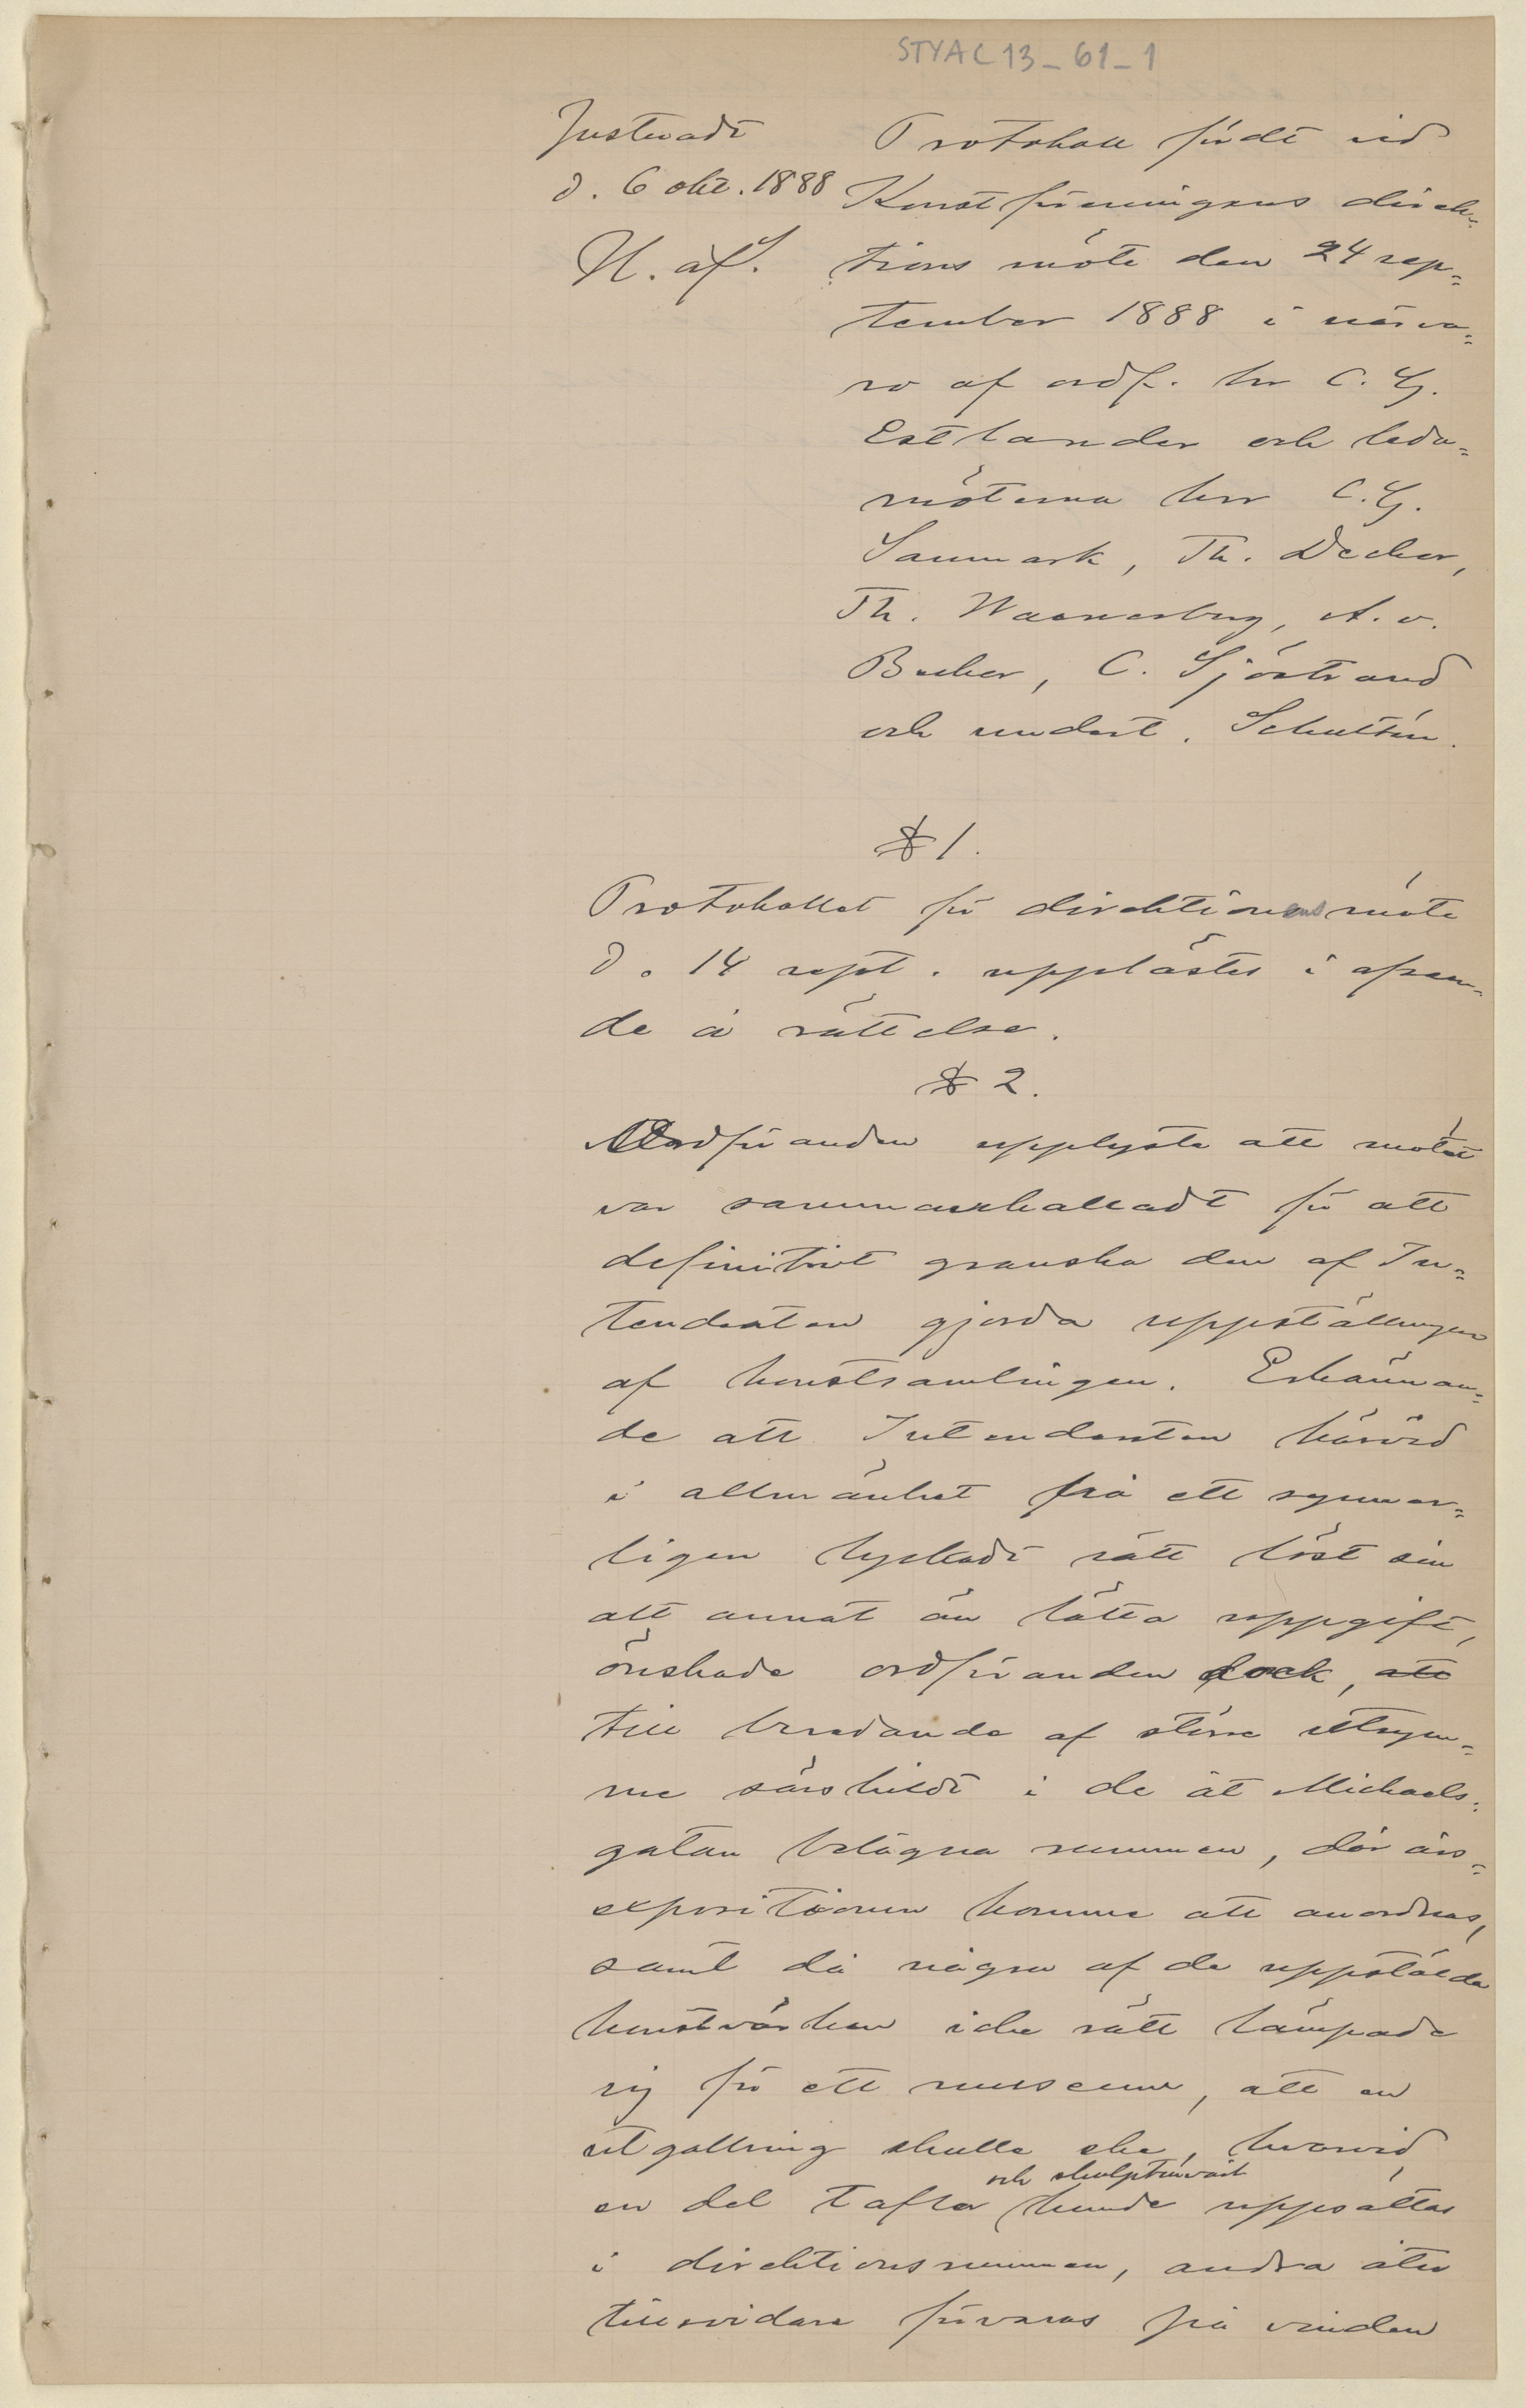 STYAC13_61_1
Justeradt
d. 6 okt. 1888
H. af S.
Protokoll fördt vid
Konstföreningens direk-
tions möte den 24 sep-
tember 1888 i närva-
ro af ordf. hr C. G.
Estlander och leda-
möterna hrr C. G.
Sanmark, Th. Decker,
Th. Waenerberg, A. v.
Becker, C. Sjöstrand
och undert. Schultén.
§ 1.
Protokollet för direktionens möte
d. 14 sept. upplästes i afsan-
de å rättelse.
§ 2.
Ordföranden upplyste att mötet
var sammankalladt för att
definitivt granska den af In-
tendenten gjorda uppställningen
af konstsamlingen. Erkännan-
de att Intendenten härvid
i allmänhet på ett synner-
ligen lyckadt sätt löst sin
allt annat än lätta uppgift,
önskade ordföranden dock, att
till beredande af större utrym-
me särskildt i de åt Michaels-
gatan belägna rummen, där års-
expositionen komme att anordnas,
samt då några af de uppstälda
konstvärken icke rätt lämpade
sig för ett museum, att en
utgallring skulle ske, hvarvid
och skulpturvärk
en del taflor kunde uppsättas
i direktionsrummen, andra åter
tillsvidare förvaras på vinden